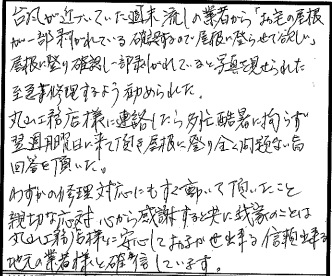 台風が近づいていた週末 流しの業者から「お宅の屋根
が一部剥がれている 確認するので屋根に登らせて欲しい」
屋根に登り確認し一部剥がれていると写真を見せられた
至急修理するよう勧められた。
丸山工務店様に連絡したら多忙酷暑に拘らず
翌週月曜日に来て頂き屋根に登り全く問題ない旨
回答を頂いた。
わずかの修理対応にもすぐ動いて頂いたこと
親切な応対 心から感謝すると共に我家のことは
丸山工務店様に安心しておまかせ出来る 信頼出来る
地元の業者様と確信しています。